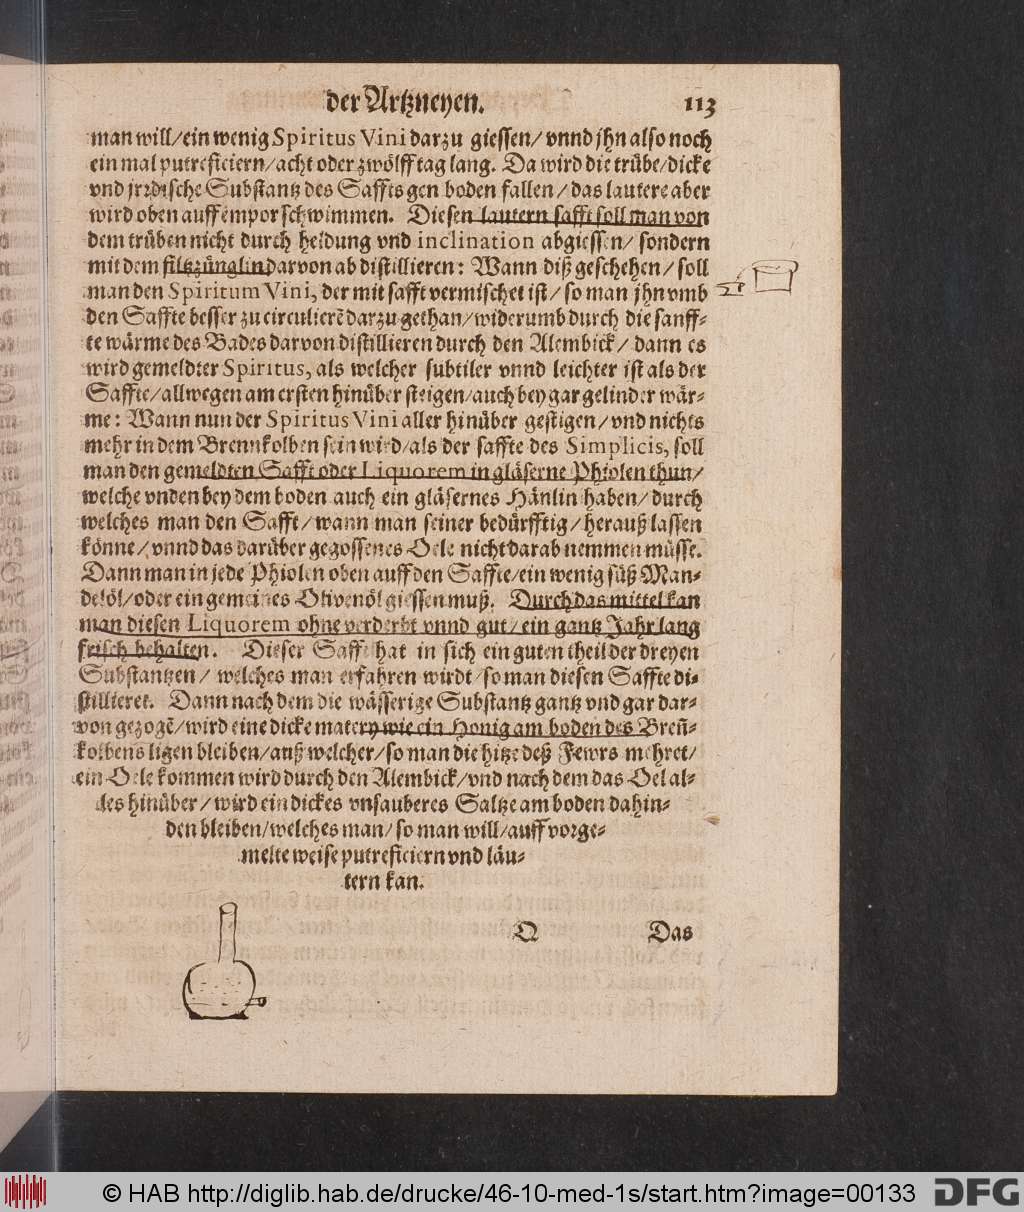 der Artzneyen. 113
man will/ein wenig Spiritus Vini darzu giessen/ vnnd jhn also noch
ein mal putreficiern/acht oder zwölff tag lang. Da wird die trübe/dicke
vnd jrrdische Substantz des Saffts gen boden fallen/ das lautere aber
wird oben auff empor schwimmen. Diesen lautern safft soll man von
dem trüben nicht durch heldung vnd inclination abgiessen/ sondern
mit dem filtzzünglin darvon ab distillieren: Wann diß geschehen/ soll
man den Spiritum Vini, der mit safft vermischet ist/ so man jhn vmb
den Saffte besser zu circulierē darzu gethan/widerumb durch die sanff⸗
te wärme des Bades darvon distillieren durch den Alembick/ dann es
wird gemeldter Spiritus, als welcher subtiler vnnd leichter ist als der
Saffte/allwegen am ersten hinüber steigen/auch bey gar gelinder wär⸗
me: Wann nun der Spiritus Vini aller hinüber gestigen/ vnd nichts
mehr in dem Brennkolben sein wird/als der saffte des Simplicis, soll
man den gemeldten Safft oder Liquorem in gläserne Phiolen thun/
welche vnden bey dem boden auch ein gläsernes Hänlin haben/ durch
welches man den Safft/wann man seiner bedürfftig/herauß lassen
könne/vnnd das darüber gegossenes Oele nicht darab nemmen müsse.
Dann man in jede Phiolen oben auff den Saffte/ein wenig süß Man⸗
delöl/oder ein gemeines Olivenöl giessen muß. Durch das mittel kan
man diesen Liquorem ohne verderbt vnnd gut/ein gantz Jahr lang
frisch behalten. Dieser Saffte hat in sich ein guten theil der dreyen
Substantzen/ welches man erfahren wirdt/so man diesen Saffte di⸗
stillieret. Dann nach dem die wässerige Substantz gantz vnd gar dar⸗
von gezogē/wird eine dicke matery wie ein Honig am boden des Breñ⸗
kolbens ligen bleiben/auß welcher/so man die hitze deß Fewrs mehret/
ein Oele kommen wird durch den Alembick/vnd nach dem das Oel al⸗
les hinüber/ wird ein dickes vnsauberes Saltze am boden dahin⸗
den bleiben/welches man/ so man will/auff vorge⸗
melte weise putreficiern vnd läu⸗
tern kan.
Q Das
© HAB http://diglib.hab.de/drucke/46-10-med-1s/start.htm?image=00133 DFG